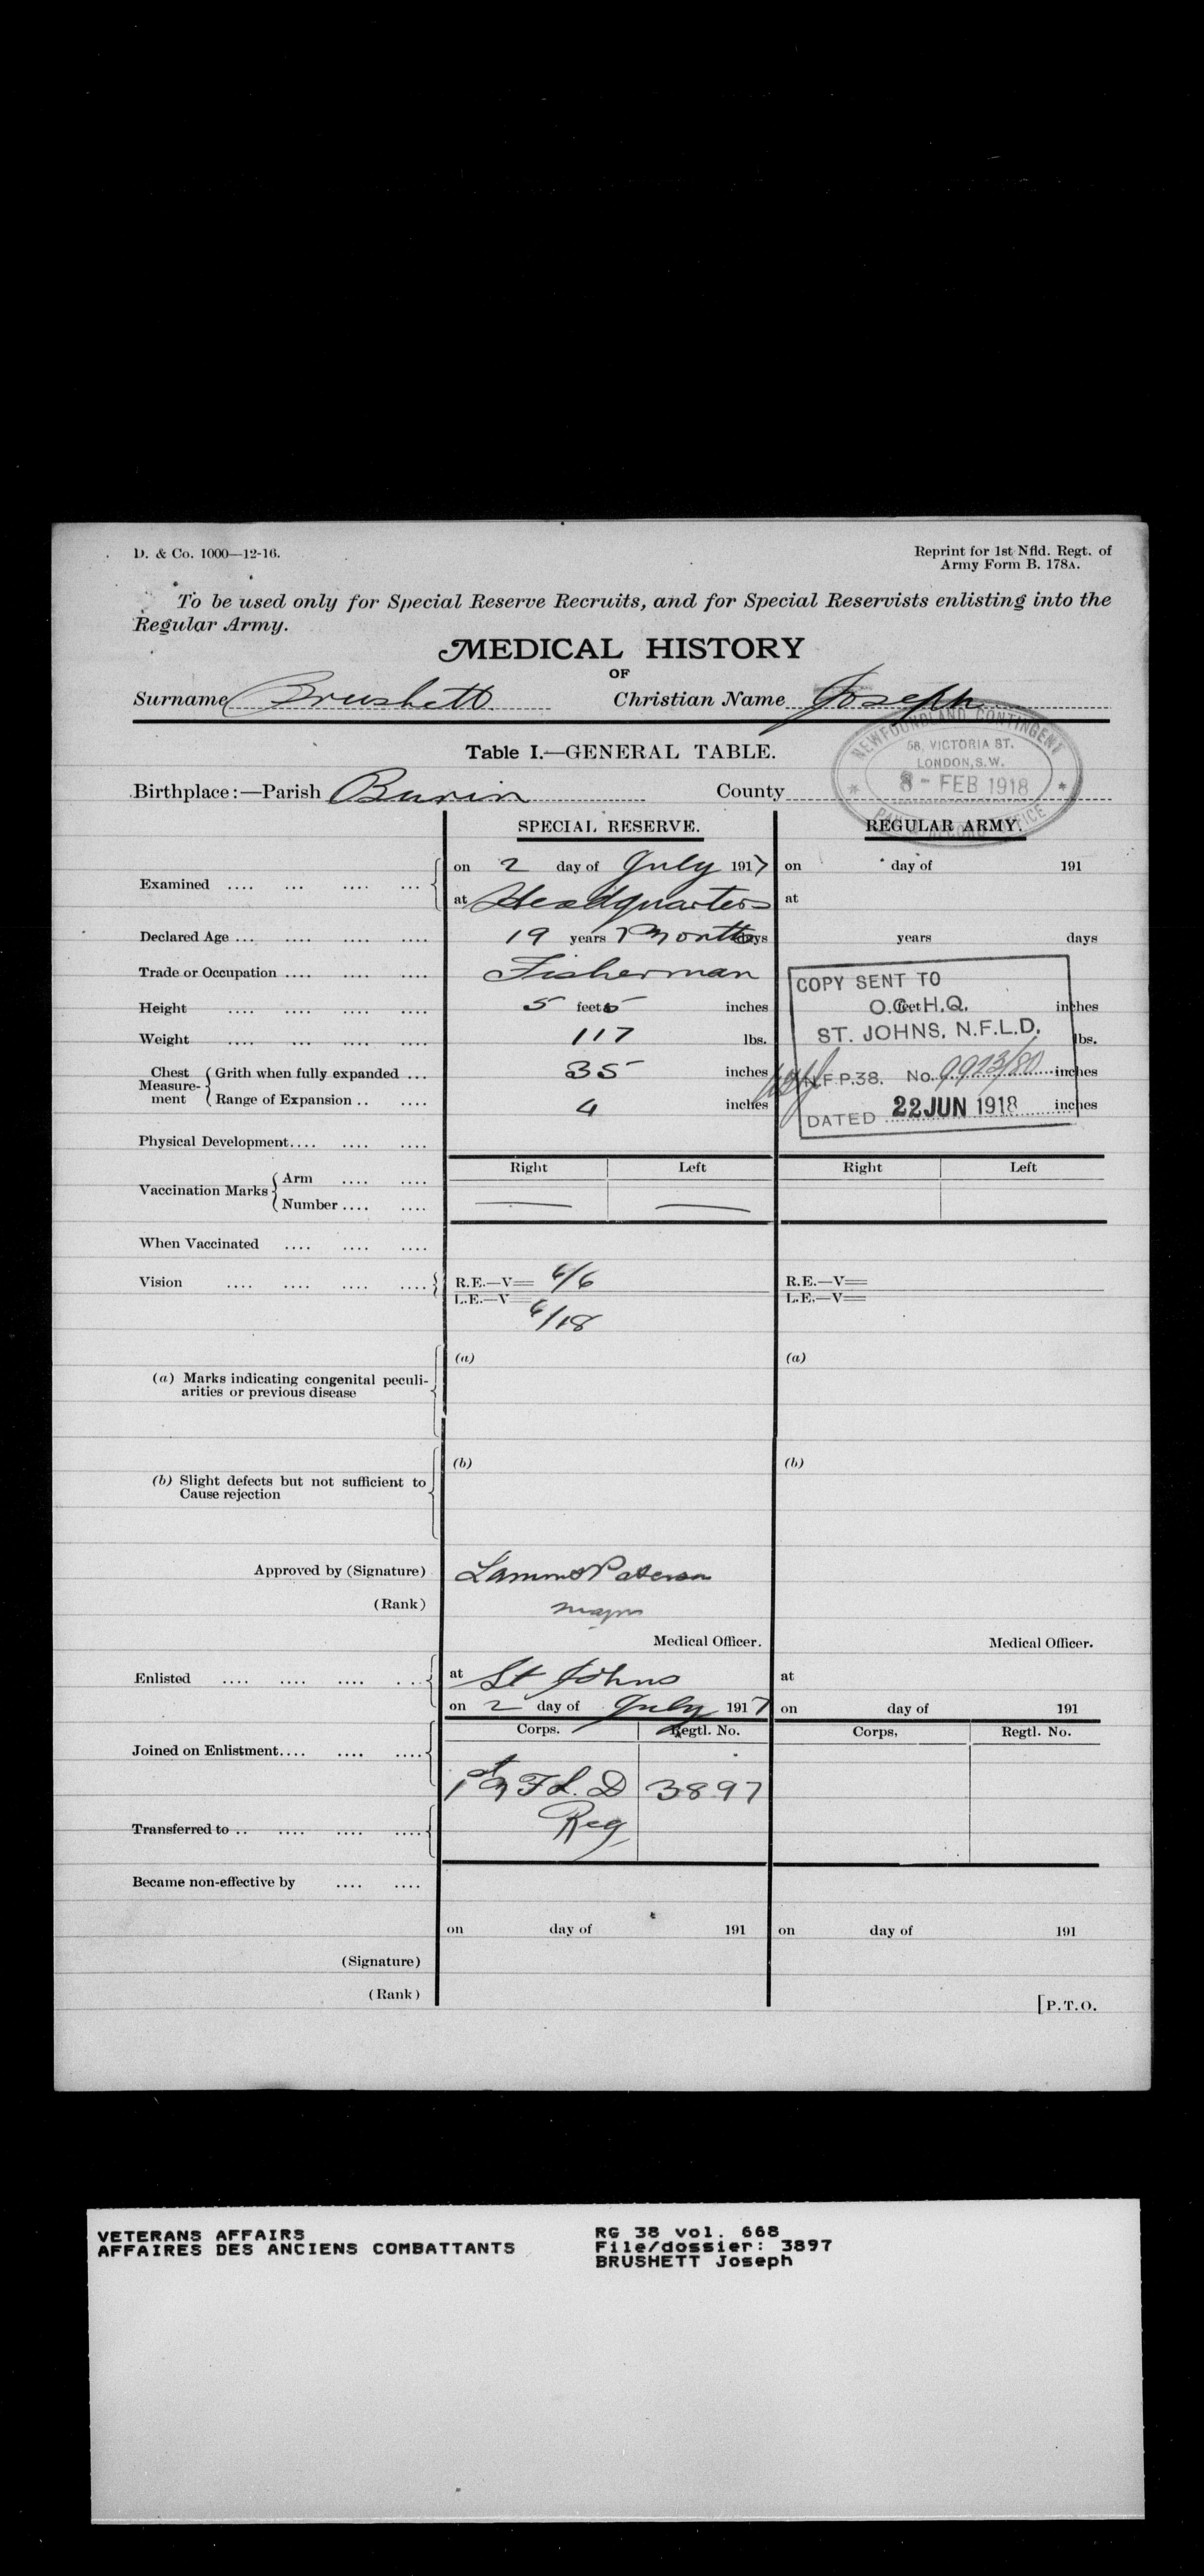 D. & Co. 1000—12-16.
Reprint for 1st Nfld. Regt. of
Army Form B. 178A.
To be used only for Special Reserve Recruits, and for Special Reservists enlisting into the
Regular Army.
MEDICAL HISTORY
OF
Surname Brushett Christian Name Joseph
NEWFOUNDLAND CONTINGENT
58, VICTORIA ST.
LONDON, S.W.
8 - FEB 1918
PAY & RECORD OFFICE
Table I.—GENERAL TABLE.
Birthplace:—Parish Burin County
SPECIAL RESERVE. REGULAR ARMY.
Examined .... ... .... ... on 2 day of July 1917 on day of 191
at Headquarters at
Declared Age ... .... .... .... 19 years Months days years days
Trade or Occupation .... .... .... Fisherman
Height .... .... .... .... 5 feet 5 inches feet inches
Weight .... ... .... .... 117 lbs. lbs.
Chest Measure-ment Grith when fully expanded ... 35 inches inches
Range of Expansion .. .... 4 inches inches
COPY SENT TO
O.C. H.Q.
ST. JOHNS, N.F.L.D.
N.F P.38. No. 9923/80
DATED 22 JUN 1918
Physical Development.... .... ....
Right Left Right Left
Vaccination Marks Arm .... ....
Number .... ....
When Vaccinated .... .... ....
Vision .... .... .... .... R.E.—V= 6/6 R.E.—V=
L.E.—V= 6/18 L.E.—V=
(a) Marks indicating congenital peculi-
arities or previous disease
(a) (a)
(b) Slight defects but not sufficient to
Cause rejection
(b) (b)
Approved by (Signature) Lamont Paterson
(Rank) Major
Medical Officer. Medical Officer.
Enlisted .... .... .... ... at St Johns at
on 2 day of July 1917 on day of 191
Corps. Regtl. No. Corps. Regtl. No.
Joined on Enlistment.... .... ....
1st NFL.D 3897
Reg
Transferred to .. .... .... ....
Became non-effective by .... ....
on day of 191 on day of 191
(Signature)
(Rank)
[P.T.O.
VETERANS AFFAIRS
AFFAIRES DES ANCIENS COMBATTANTS
RG 38 vol. 668
File/dossier: 3897
BRUSHETT Joseph